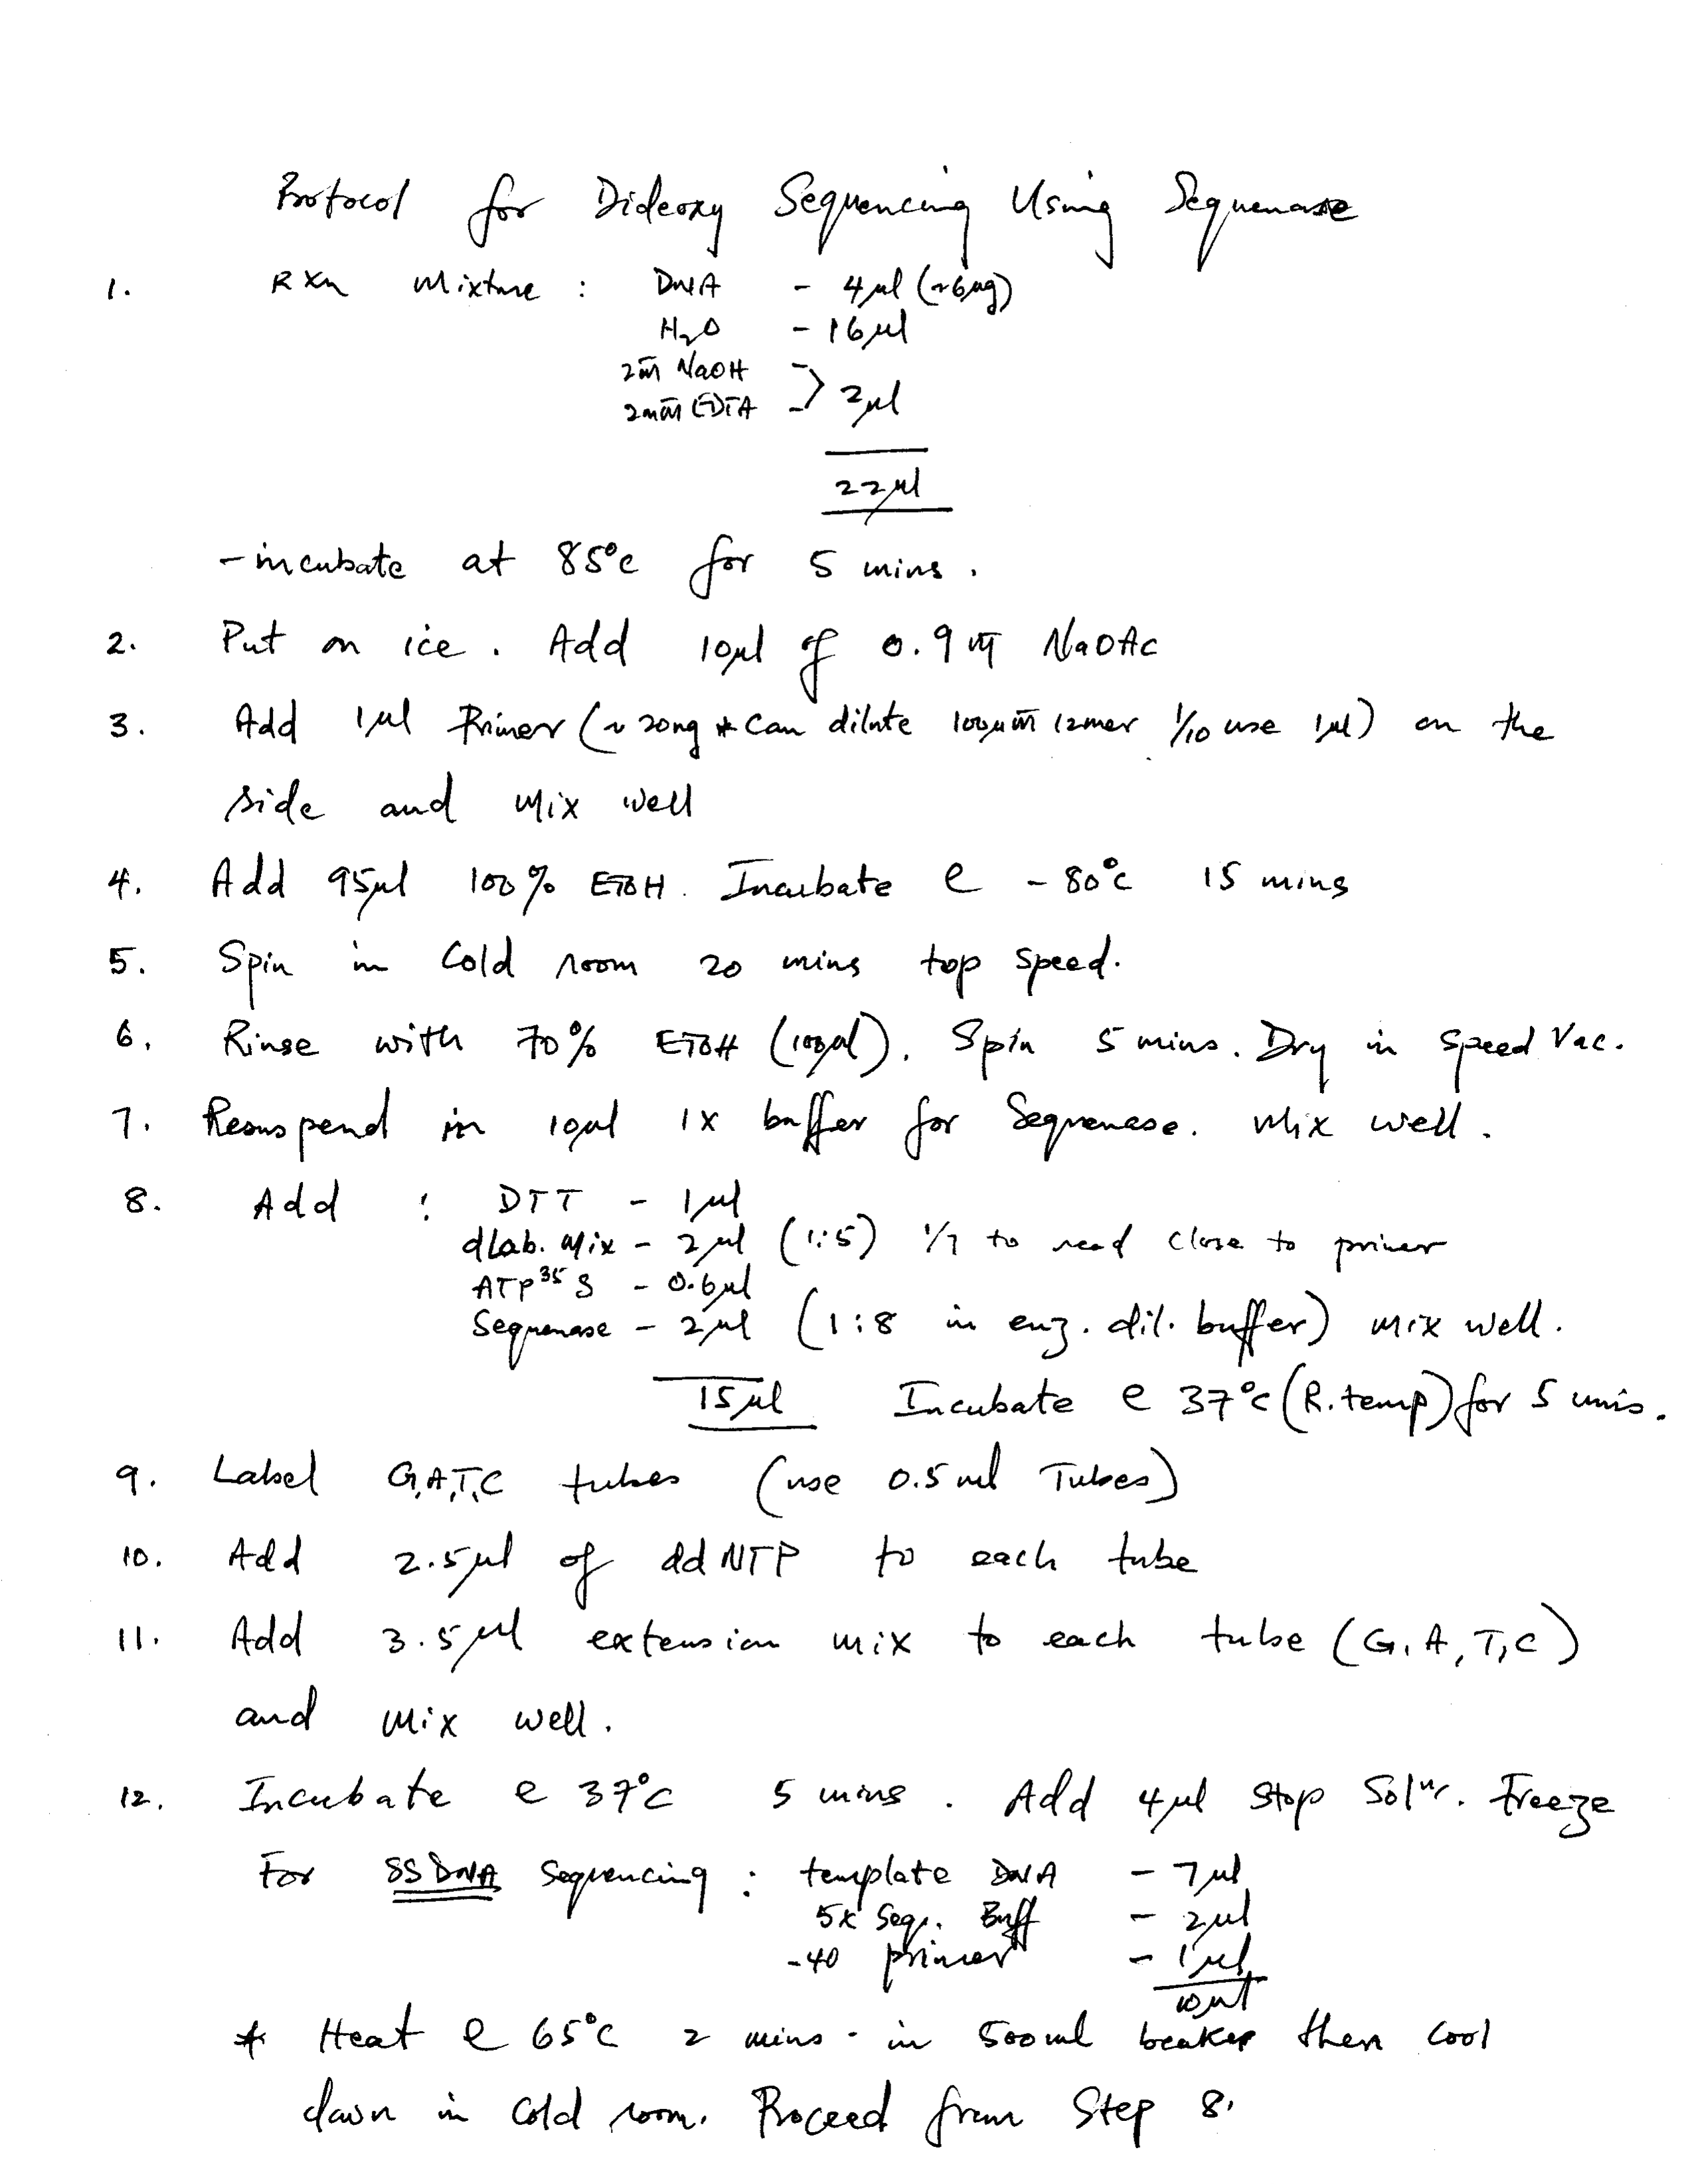 Protocol for Dideoxy Sequencing Using Sequenase
1. RXn Mixture : DNA - 4µl (~6µg)
H2O - 16µl
2M NaOH
2mM EDTA - 2µl
22µl
- incubate at 85°c for 5 mins.
2. Put on ice. Add 10µl of 0.9M NaOAc
3. Add 1µl Primer (~20ng * Can dilute 100µM 12mer 1/10 use 1µl) on the
side and mix well
4. Add 95µl 100% EtOH. Incubate @ -80°c 15 mins
5. Spin in Cold room 20 mins top speed.
6. Rinse with 70% EtOH (100µl). Spin 5 mins. Dry in Speed Vac.
7. Resuspend in 10µl 1X buffer for Sequenase. Mix well.
8. Add : DTT - 1µl
dLab. Mix - 2µl (1:5) 1/7 to read close to primer
ATP35S - 0.6µl
Sequenase - 2µl (1:8 in enz. dil. buffer) mix well.
15µl Incubate @ 37°c (R.temp) for 5 mins.
9. Label G,A,T,C tubes (use 0.5ml Tubes)
10. Add 2.5µl of ddNTP to each tube
11. Add 3.5µl extension mix to each tube (G,A,T,C)
and mix well.
12. Incubate @ 37°C 5 mins. Add 4µl Stop Soln. Freeze
For SSDNA Sequencing : template DNA - 7µl
5X Seq. Buff - 2µl
-40 primer - 1µl
10µl
* Heat @ 65°C 2 mins - in 500ml beaker then cool
down in cold room. Proceed from Step 8.